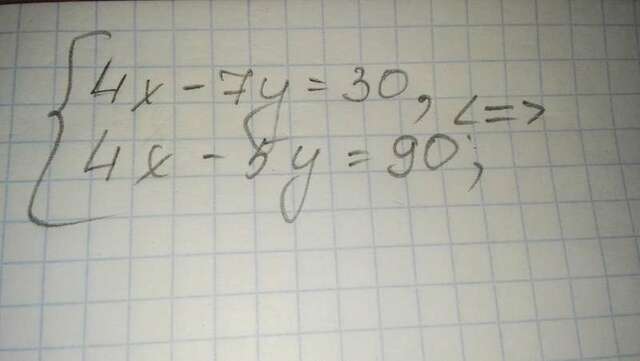 { 4x - 7y = 30, <=>
4x - 5y = 90;